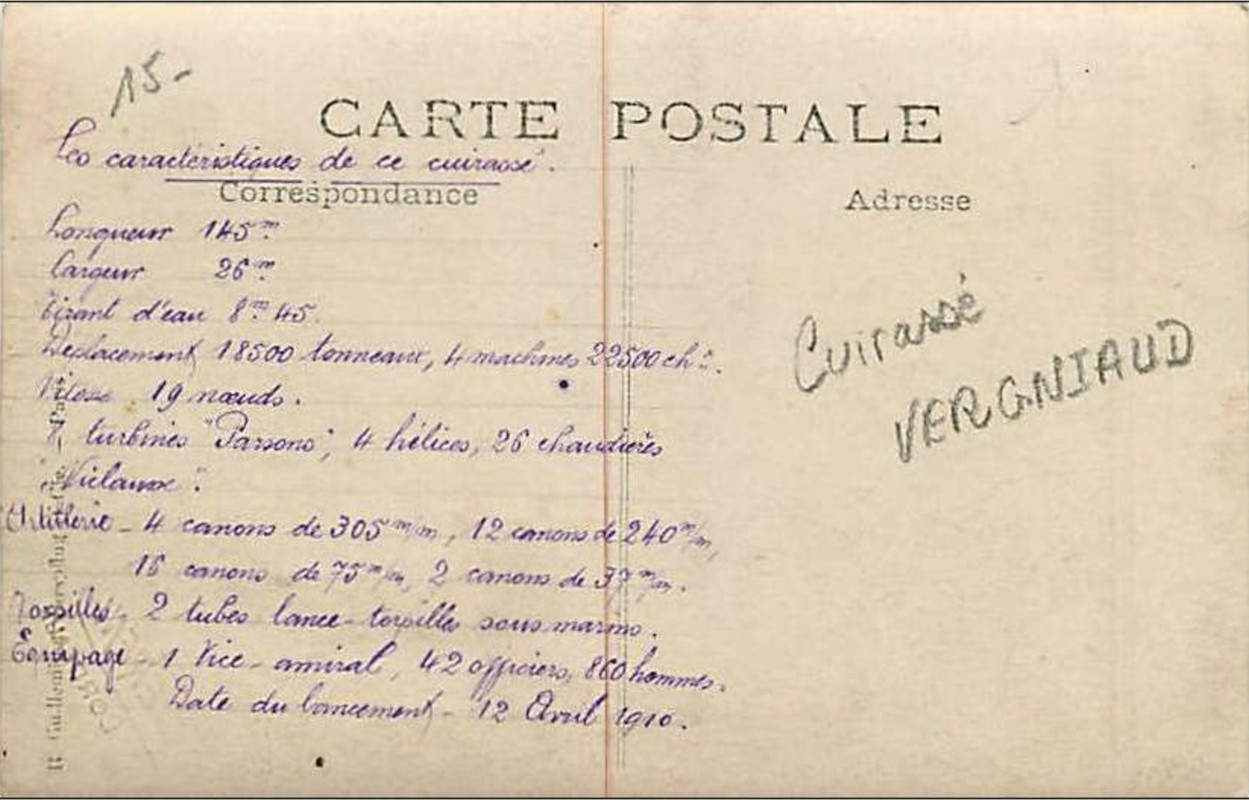 15-
CARTE POSTALE
Les caractéristiques de ce cuirassé.
Correspondance
Adresse
Longueur 145 m
Largeur 26 m
Tirant d'eau 8 m 45.
Déplacement 18500 tonneaux, 4 machines 22500 chx.
Vitesse 19 nœuds.
turbines "Parsons", 4 hélices, 26 chaudières
"Niclausse".
Artillerie - 4 canons de 305 m/m, 12 canons de 240 m/m,
16 canons de 75 m/m, 2 canons de 37 m/m.
Torpilles - 2 tubes lance-torpilles sous marins.
Equipage - 1 Vice-amiral, 42 officiers, 860 hommes.
Date du lancement - 12 Avril 1910.
Cuirassé
VERGNIAUD
R. Guilleminot